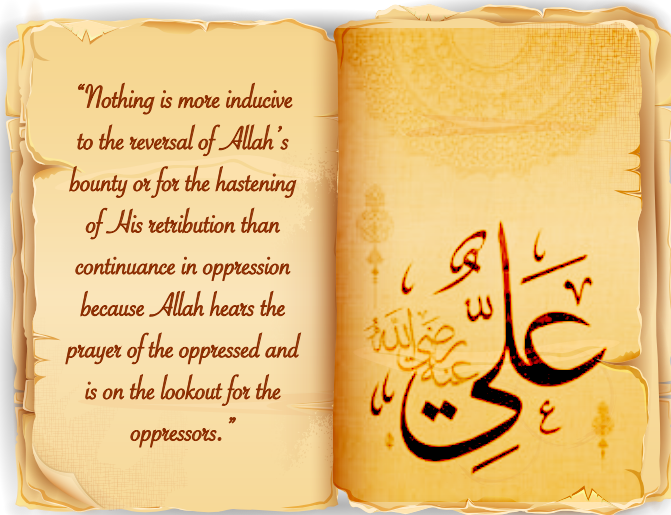 “Nothing is more inducive
to the reversal of Allah’s
bounty or for the hastening
of His retribution than
continuance in oppression
because Allah hears the
prayer of the oppressed and
is on the lookout for the
oppressors.”
عَلِيٌّ
رضي الله عنه